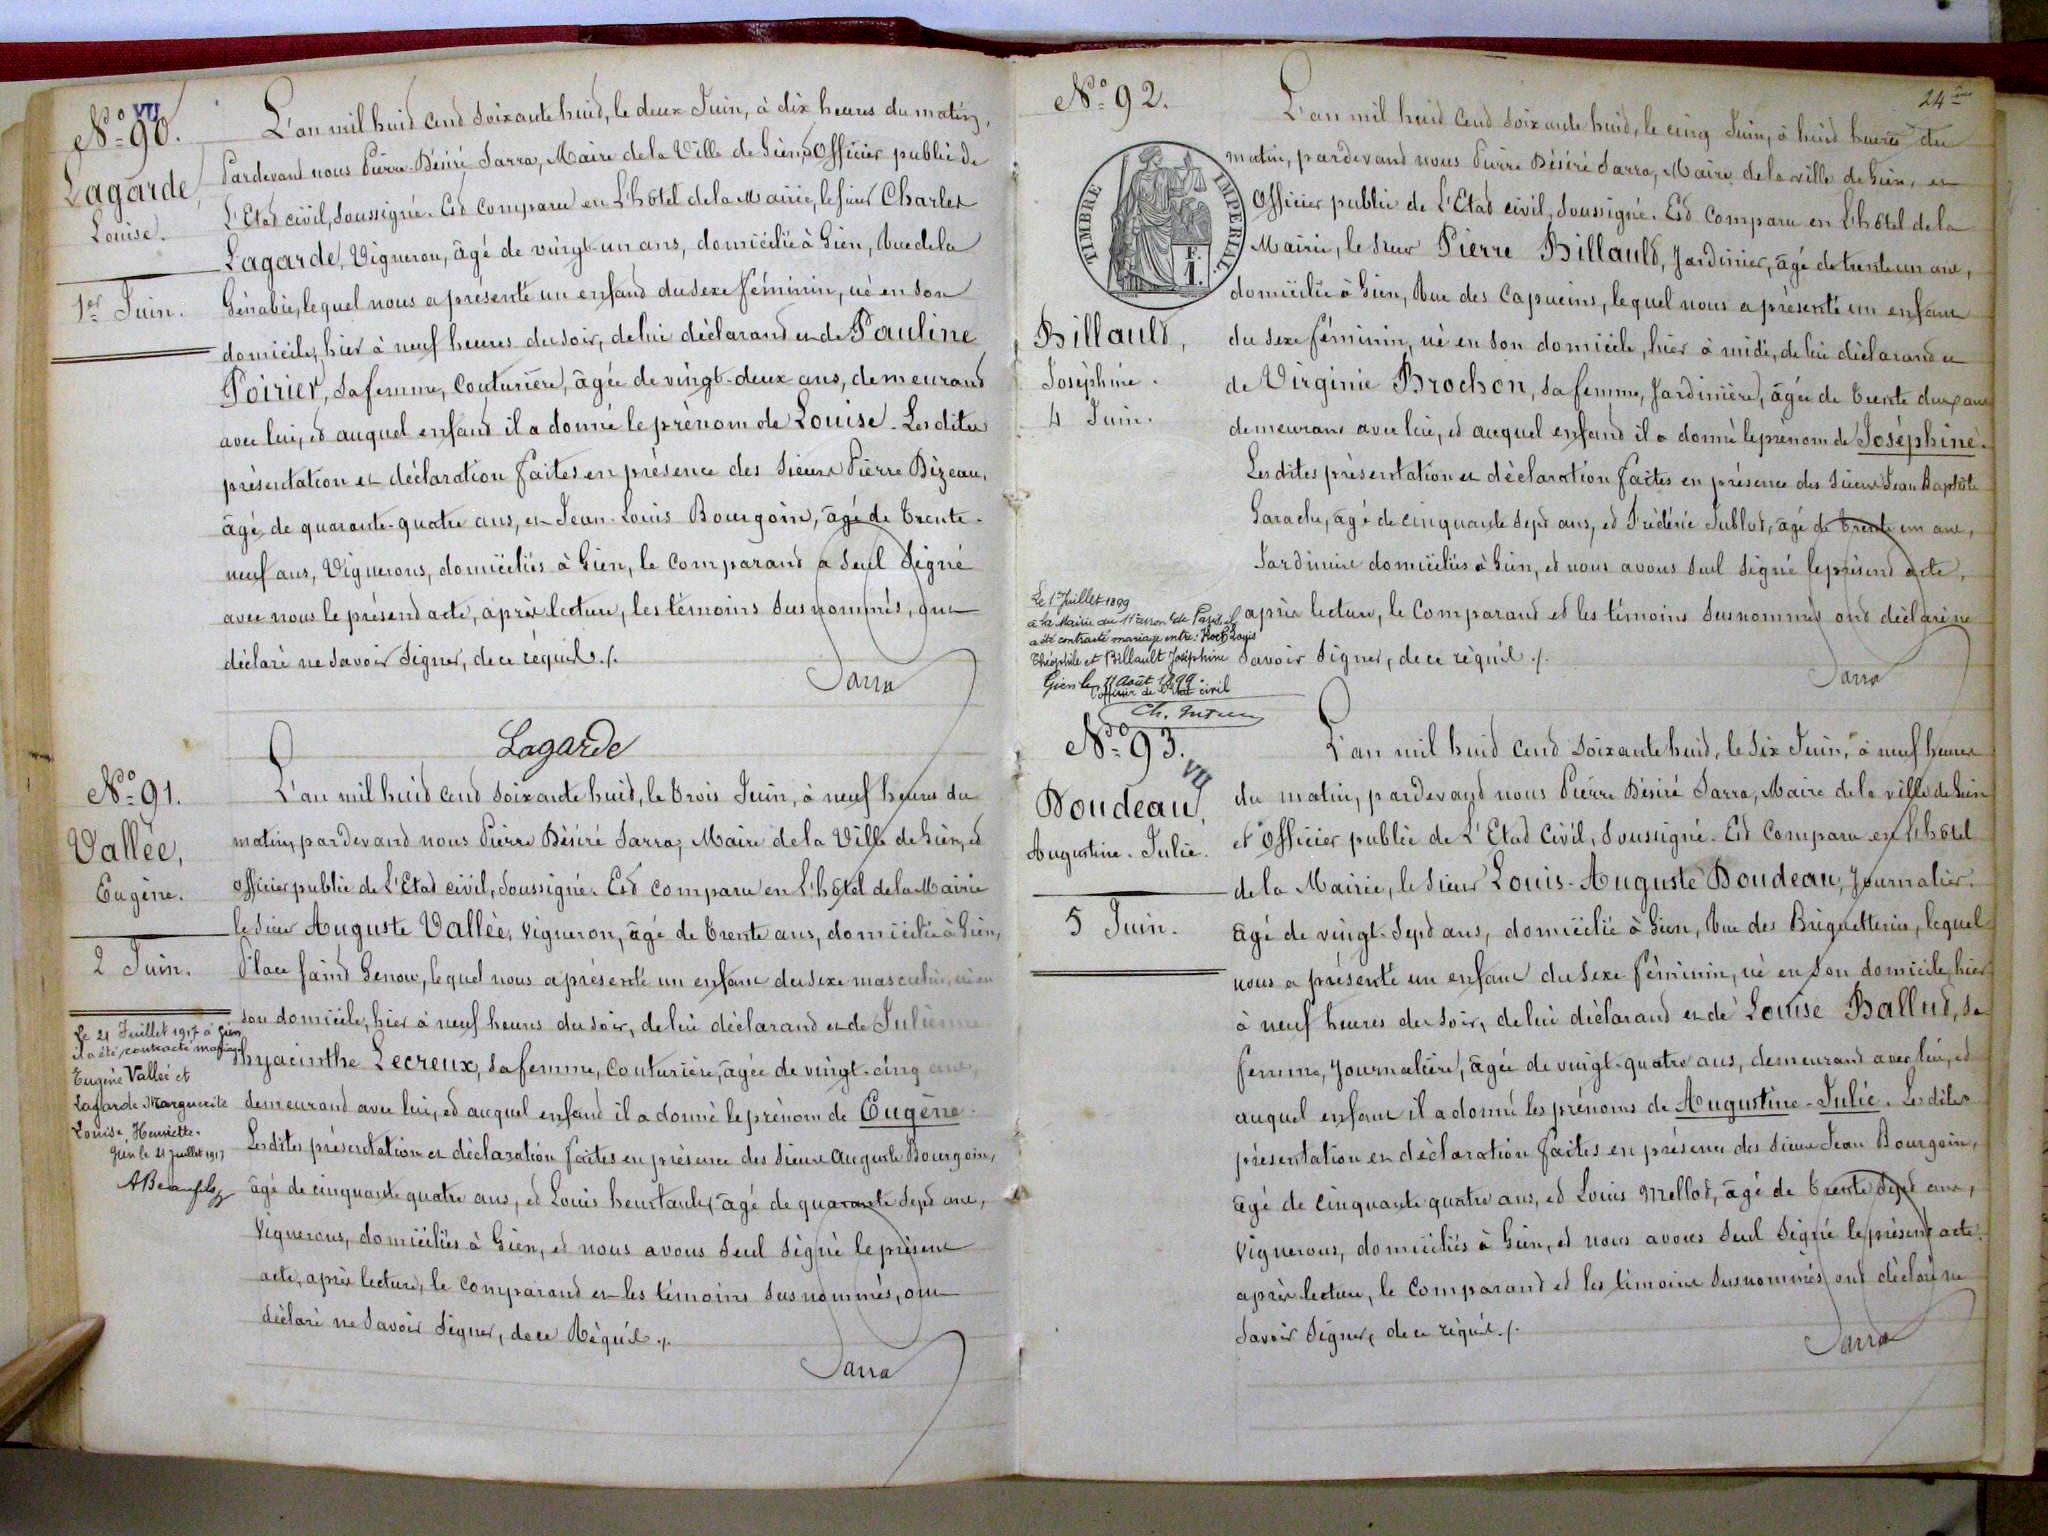 VU
N° 90.
Lagarde,
Louise.
1er Juin.
L'an mil huit cent soixante huit, le deux Juin, à dix heures du matin,
Pardevant nous Pierre Désiré Sarra, Maire de la Ville de Gien, Officier public de
L'Etat civil, soussigné. Est comparu en L'hôtel de la Mairie, le sieur Charles
Lagarde, Vigneron, âgé de vingt-un ans, domicilié à Gien, Rue de la
Génabie, lequel nous a présenté un enfant du sexe féminin, né en son
domicile, hier à neuf heures du soir, de lui déclarant et de Pauline
Poirier, sa femme, Couturière, âgée de vingt-deux ans, demeurant
avec lui, et auquel enfant il a donné le prénom de Louise. Les dites
présentation et déclaration faites en présence des sieurs Pierre Bizeau,
âgé de quarante-quatre ans, et Jean-Louis Bourgoin, âgé de trente-
neuf ans, Vignerons, domiciliés à Gien, le Comparant a seul signé
avec nous le présent acte, après lecture, les témoins susnommés, ont
déclaré ne savoir signer, de ce réquis ./.
Sarra
Lagarde
N° 91.
Vallée,
Eugène.
2 Juin.
Le 21 Juillet 1917 à Gien
il a été contracté mariage
Eugène Vallée et
Lagarde Marguerite
Louise, Henriette.
Gien le 21 Juillet 1917
L'an mil huit cent soixante huit, le trois Juin, à neuf heures du
matin, pardevant nous Pierre Désiré Sarra, Maire de la Ville de Gien, et
Officier public de L'Etat civil, soussigné. Est comparu en L'hôtel de la Mairie
le sieur Auguste Vallée, vigneron, âgé de trente ans, domicilié à Gien,
Place saint, lequel nous a présenté un enfant du sexe masculin, né en
son domicile, hier à neuf heures du soir, de lui déclarant et de Julienne
hyacinthe Lecreux, sa femme, Couturière, âgée de vingt-cinq ans,
demeurant avec lui, et auquel enfant il a donné le prénom de Eugène.
Les dites présentation et déclaration faites en présence des sieurs Auguste Bourgoin,
âgé de cinquante quatre ans, et Louis, âgé de quarante sept ans,
Vignerons, domiciliés à Gien, et nous avons seul signé le présent
acte, après lecture, le Comparant et les témoins susnommés, ont
déclaré ne savoir signer, de ce Réquis ./.
Sarra
24ème
N° 92.
TIMBRE IMPERIAL.
F.
1.
Billault,
Joséphine.
4 Juin.
Le 1er Juillet 1899
à la Mairie du 11e arron t de Paris
a été contracté mariage entre: Koch Louis
Théophile et Billault Joséphine
Gien le 11 Août 1899.
L'officier de l'Etat civil
L'an mil huit cent soixante huit, le cinq Juin, à huit heures du
matin, pardevant nous Pierre Désiré Sarra, Maire de la ville de Gien, et
Officier public de L'Etat civil, soussigné. Est Comparu en L'hôtel de la
Mairie, le sieur Pierre Billault, Jardinier, âgé de trente un ans,
domicilié à Gien, Rue des Capucins, lequel nous a présenté un enfant
du sexe féminin, né en son domicile, hier à midi, de lui déclarant et
de Virginie Brochon, sa femme, Jardinière, âgée de trente deux ans
demeurant avec lui, et auquel enfant il a donné le prénom de Joséphine.
Les dites présentation et déclaration faites en présence des sieurs Jean Baptiste
Garache, âgé de cinquante sept ans, et Frédéric, âgé de trente un ans,
Jardiniers domiciliés à Gien, et nous avons seul signé le présent acte,
après lecture, le Comparant et les témoins susnommés ont déclaré ne
savoir signer, de ce réquis ./.
Sarra
N° 93.
VU
Doudeau,
Augustine-Julie.
5 Juin.
L'an mil huit cent soixante huit, le six Juin, à neuf heures
du matin, pardevant nous Pierre Désiré Sarra, Maire de la ville de Gien
et Officier public de L'Etat Civil, soussigné. Est Comparu en L'hôtel
de la Mairie, le sieur Louis-Auguste Doudeau, Journalier,
âgé de vingt-sept ans, domicilié à Gien, Rue des Briquetteries, lequel
nous a présenté un enfant du sexe féminin, né en son domicile, hier
à neuf heures du soir, de lui déclarant et de Louise Ballud, sa
femme, Journalière, âgée de vingt-quatre ans, demeurant avec lui, et
auquel enfant il a donné les prénoms de Augustine-Julie. Les dites
présentation et déclaration faites en présence des sieurs Jean Bourgoin,
âgé de cinquante quatre ans, et Louis Mellot, âgé de trente sept ans,
Vignerons, domiciliés à Gien, et nous avons seul signé le présent acte
après lecture, le Comparant et les témoins susnommés ont déclaré ne
savoir signer, de ce réquis ./.
Sarra